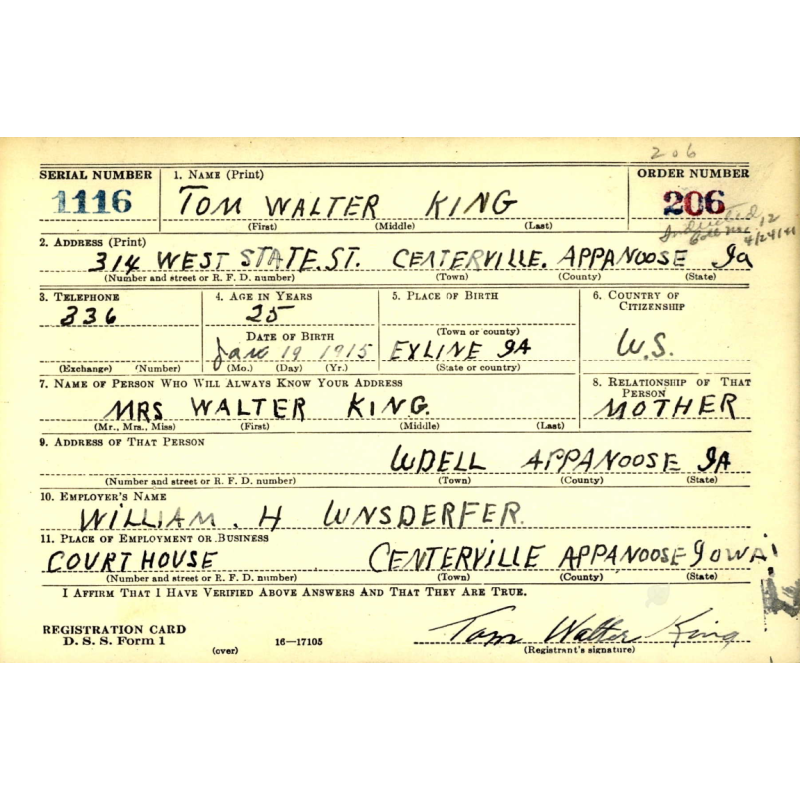 206
SERIAL NUMBER 1. NAME (Print) ORDER NUMBER
1116 TOM WALTER KING 206
(First) (Middle) (Last)
Inducted 12
4/24/41
2. ADDRESS (Print)
314 WEST STATE. ST. CENTERVILLE. APPANOOSE Ia
(Number and street or R. F. D. number) (Town) (County) (State)
3. TELEPHONE 4. AGE IN YEARS 5. PLACE OF BIRTH 6. COUNTRY OF
CITIZENSHIP
336 25
DATE OF BIRTH (Town or county)
Jan 19 1915 EXLINE IA U.S.
(Exchange) (Number) (Mo.) (Day) (Yr.) (State or country)
7. NAME OF PERSON WHO WILL ALWAYS KNOW YOUR ADDRESS 8. RELATIONSHIP OF THAT
PERSON
MRS WALTER KING. MOTHER
(Mr., Mrs., Miss) (First) (Middle) (Last)
9. ADDRESS OF THAT PERSON
UDELL APPANOOSE IA
(Number and street or R. F. D. number) (Town) (County) (State)
10. EMPLOYER'S NAME
WILLIAM. H UNSDERFER.
11. PLACE OF EMPLOYMENT OR BUSINESS
COURT HOUSE CENTERVILLE APPANOOSE IOWA
(Number and street or R. F. D. number) (Town) (County) (State)
I AFFIRM THAT I HAVE VERIFIED ABOVE ANSWERS AND THAT THEY ARE TRUE.
REGISTRATION CARD
D. S. S. Form 1 Tom Walter King
(over) 16—17105 (Registrant's signature)